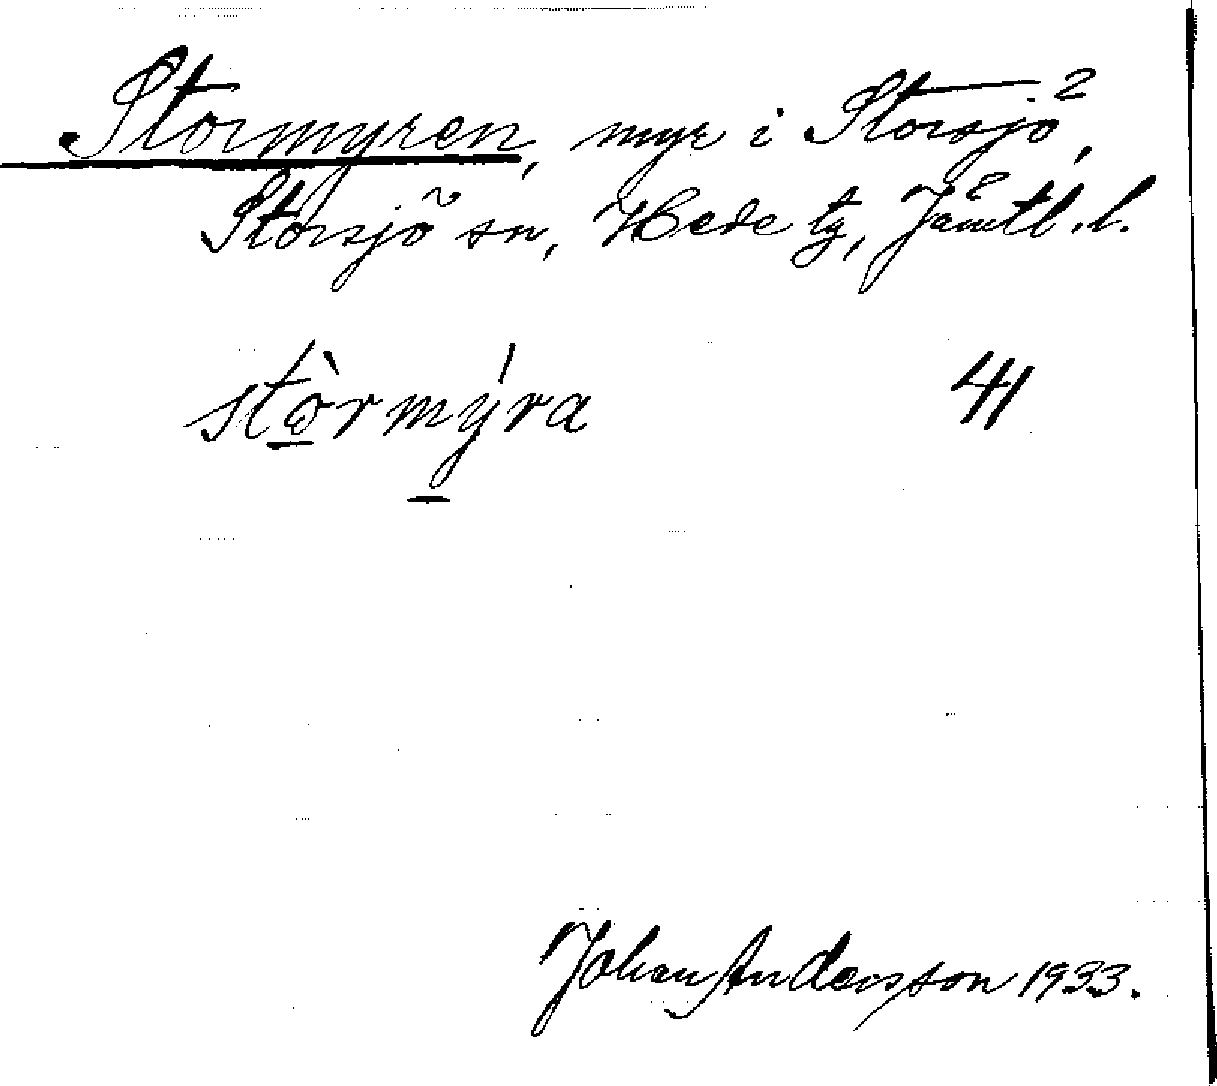 Stormyren, myr i Storsjö,
Storsjö sn, Hede tg, Jämtl. l.
stòrmýra 41
Johan Andersson 1933.